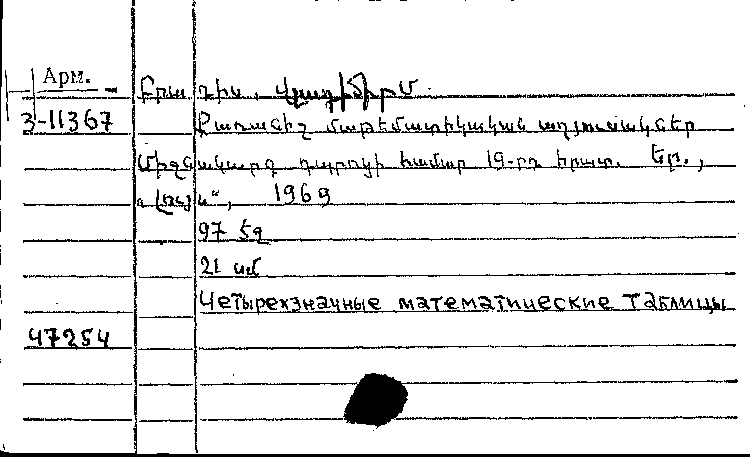 Арм.
Բրադիս, Վլադիմիր Մ.
3-11367
Քառանիշ մաթեմատիկական աղյուսակներ
միջնակարգ դպրոցի համար 19-րդ հրատ. Եր.,
„Լույս“, 1969
97 էջ
21 սմ
Четырехзначные математические таблицы
47254